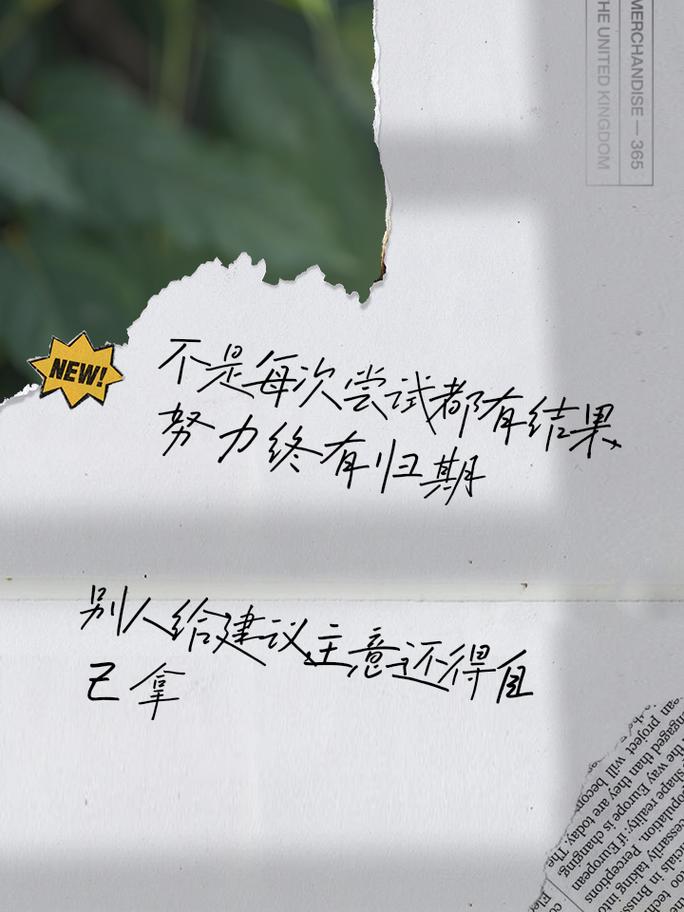 MERCHANDISE — 365
THE UNITED KINGDOM
NEW!
不是每次尝试都有结果
努力终有归期
别人给建议主意还得自
己拿
engaged than they are today. The
project will becom
the way Europe is changing
shape reality: if European
population. Perceptions
cessarily taking into
icials in Bruss